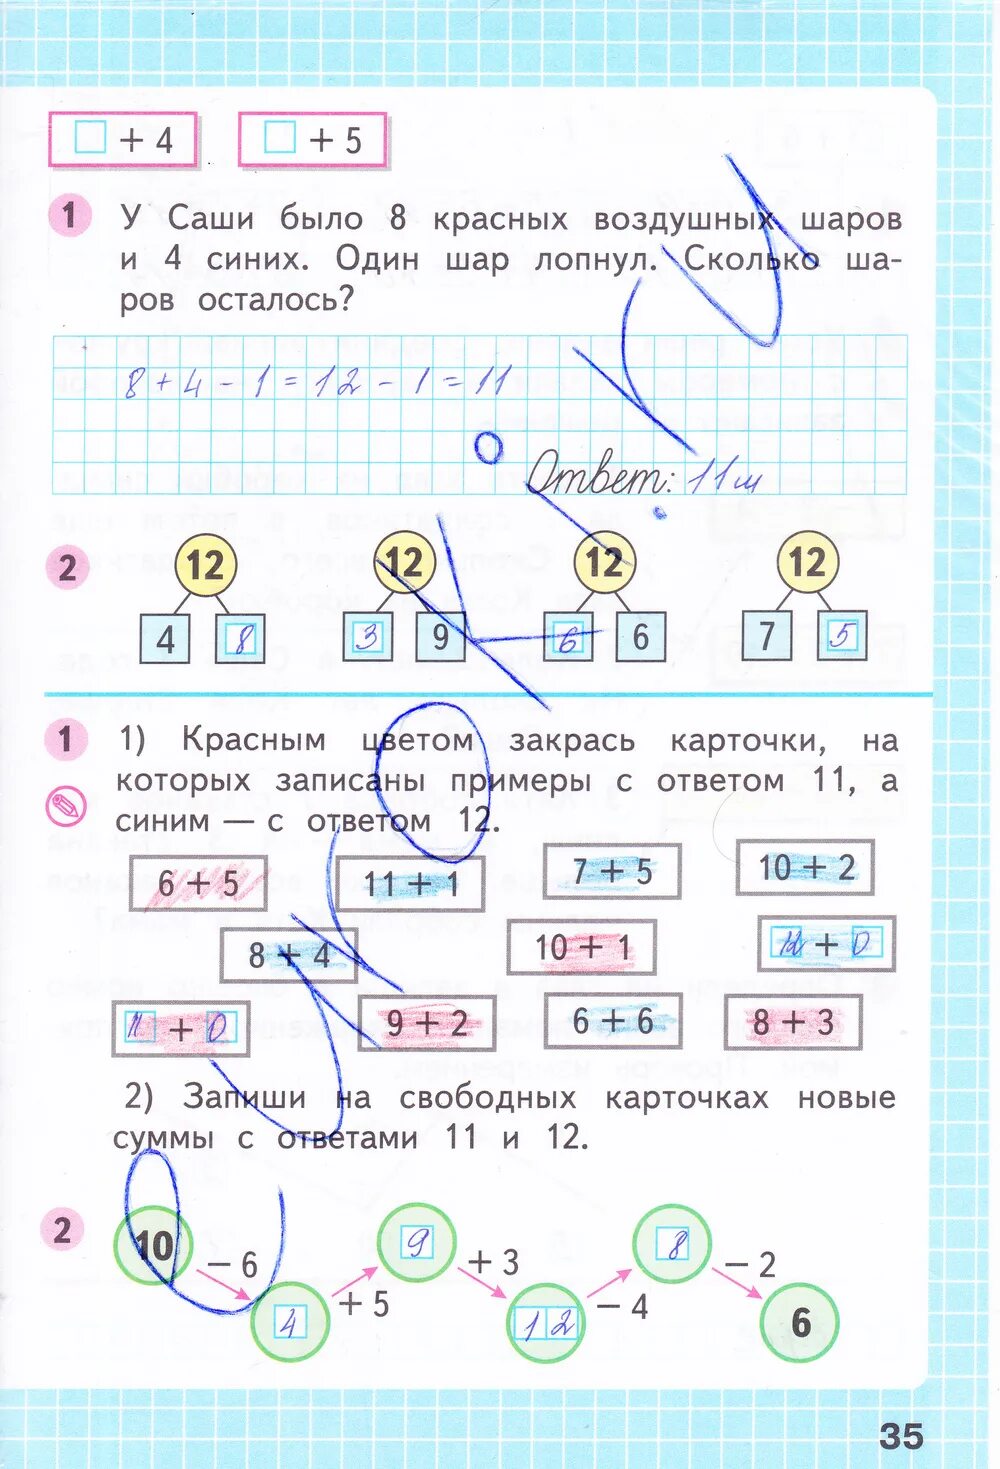 □ + 4 □ + 5
1 У Саши было 8 красных воздушных шаров
и 4 синих. Один шар лопнул. Сколько ша-
ров осталось?
8 + 4 - 1 = 12 - 1 = 11
Ответ: 11 ш
2 12 12 12 12
4 8 3 9 6 6 7 5
1 1) Красным цветом закрась карточки, на
которых записаны примеры с ответом 11, а
синим — с ответом 12.
6 + 5 11 + 1 7 + 5 10 + 2
8 + 4 10 + 1 12 + 0
11 + 0 9 + 2 6 + 6 8 + 3
2) Запиши на свободных карточках новые
суммы с ответами 11 и 12.
2 10 - 6 4 + 5 9 + 3 12 - 4 8 - 2 6
35